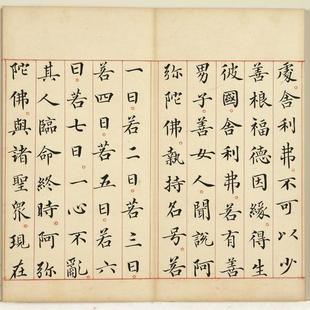 處舍利弗不可以少
善根福德因緣得生
彼國舍利弗若有善
男子善女人聞說阿
弥陀佛執持名号若
一日若二日若三日
若四日若五日若六
日若七日一心不亂
其人臨命終時阿弥
陀佛與諸聖衆現在